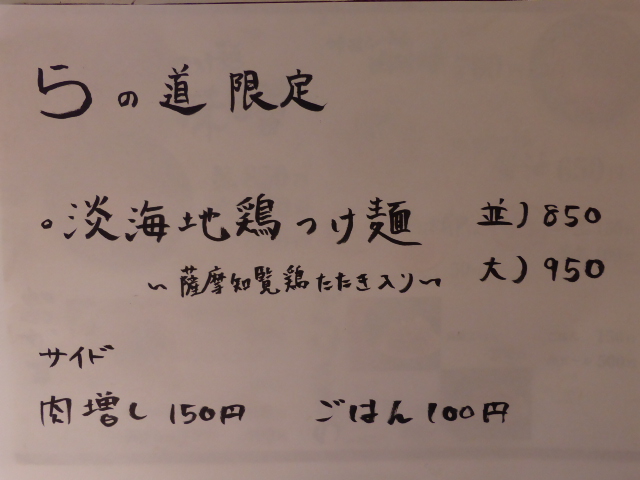 らの道 限定
・淡海地鶏つけ麺 並)850
〜薩摩知覧鶏たたき入り〜 大)950
サイド
肉増し 150円 ごはん 100円